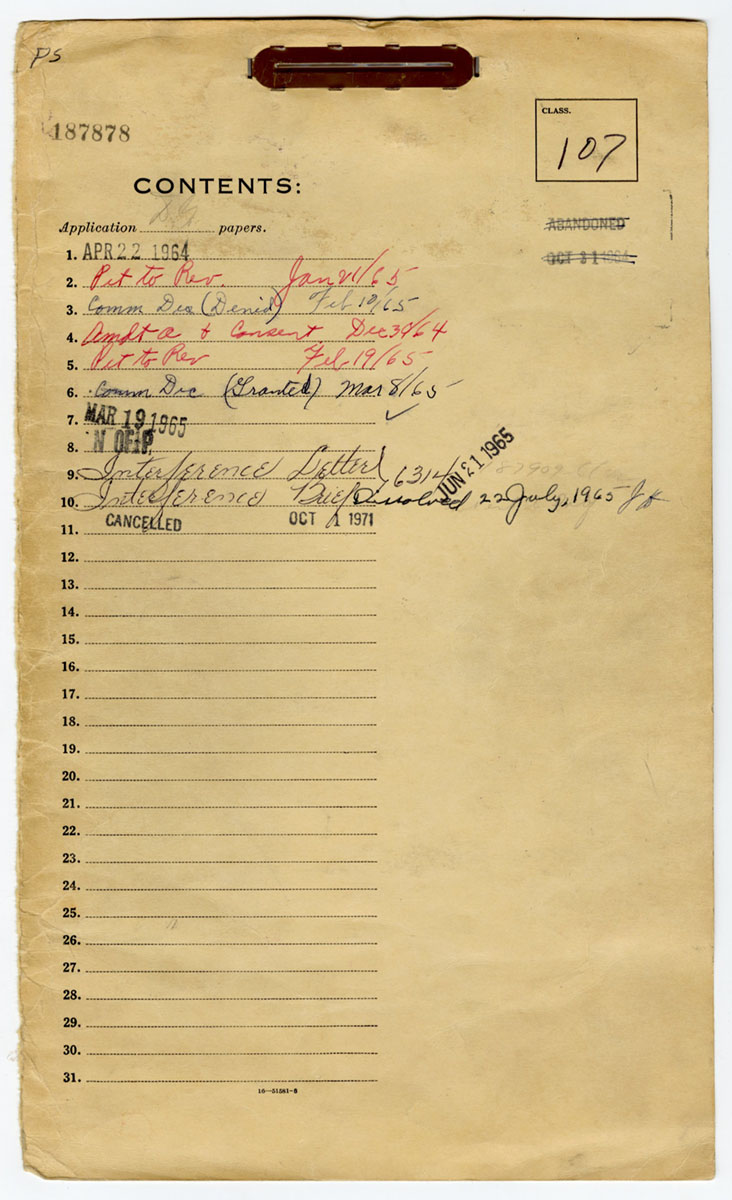 PS
187878
CLASS.
107
CONTENTS:
Application papers.
ABANDONED
OCT 31 1964
1. APR 22 1964
2. Pet to Rev. Jan 21/65
3. Comm Dec (Denied) Feb 10/65
4. Amdt A & Consent Dec 30/64
5. Pet to Rev Feb 19/65
6. Comm Dec (Granted) Mar 8/65
7. MAR 19 1965 ✓
8.
9. Interference Letter JUN 21 1965
10. Interference Brief Dissolved 22 July, 1965
11. CANCELLED OCT 1 1971
12.
13.
14.
15.
16.
17.
18.
19.
20.
21.
22.
23.
24.
25.
26.
27.
28.
29.
30.
31.
16—51581-5